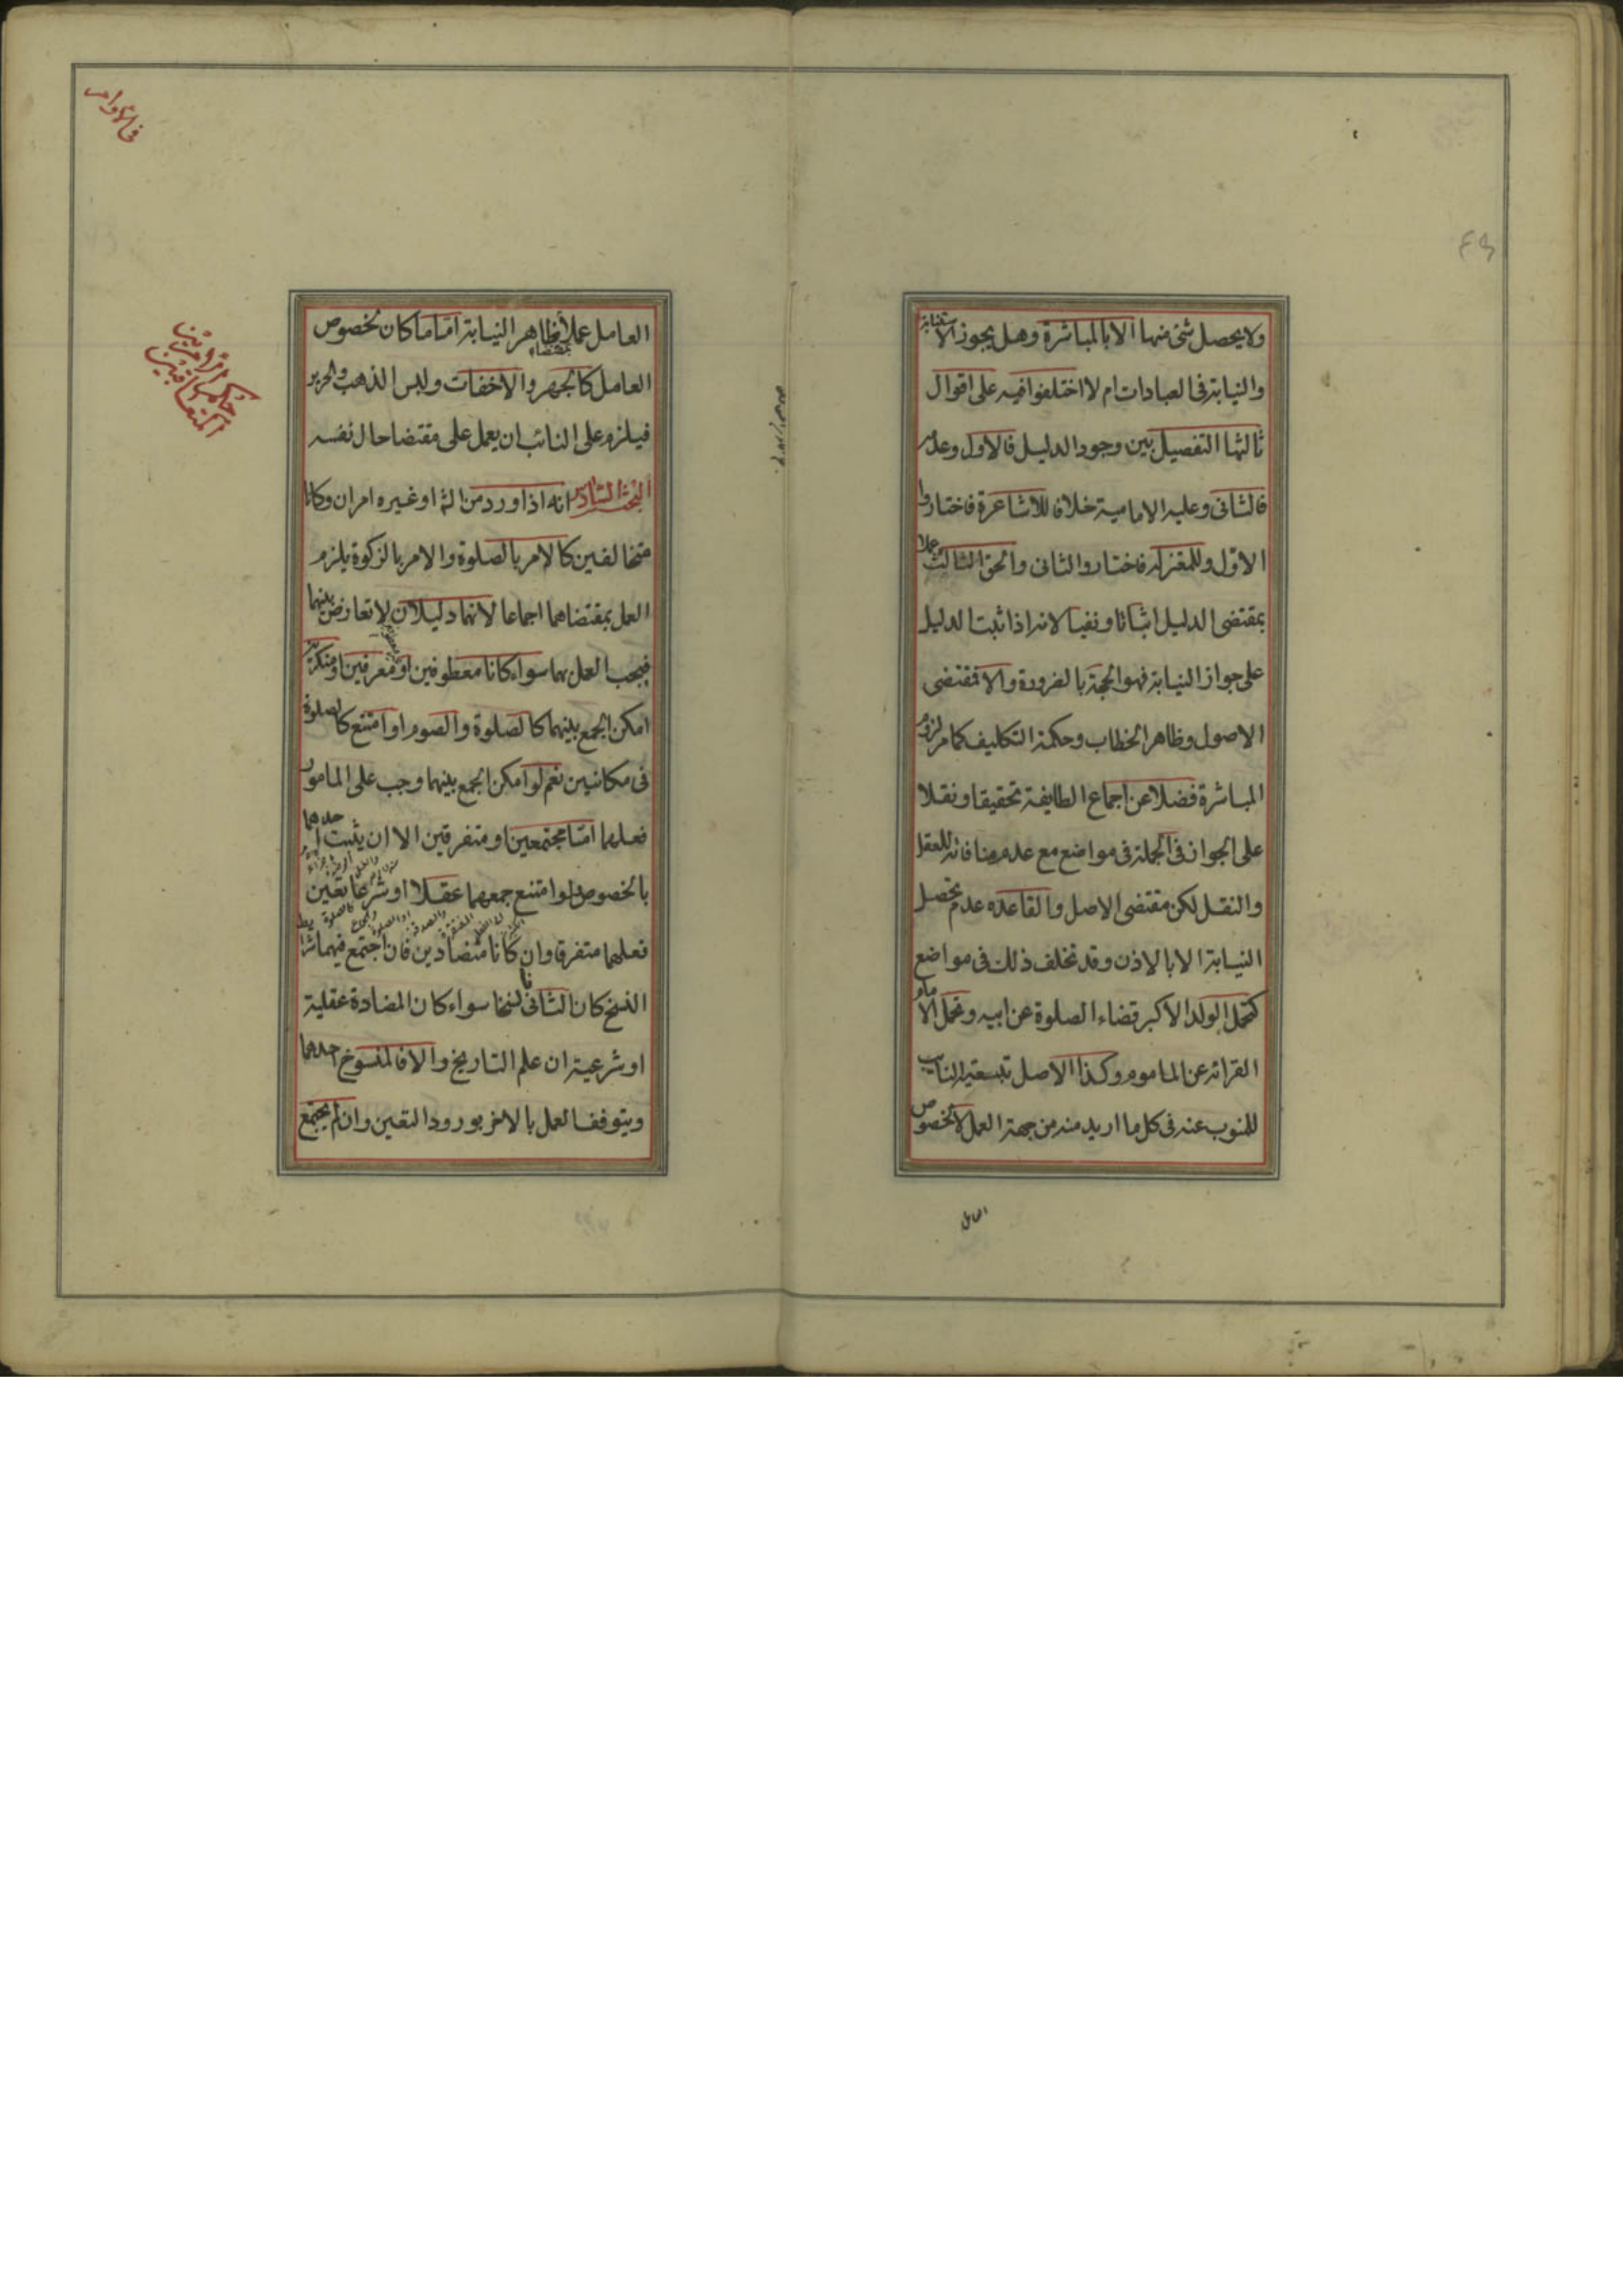 ولا يحصل شئ منها الا بالمباشرة وهل يجوز الاستنابة
والنيابة فى العبادات ام لا اختلفوا فيه على اقوال
ثالثها التفصيل بين وجود الدليل فالاول وعدمه
فالثانى وعليه الامامية خلافا للاشاعرة فاختاروا
الاول وللمعتزلة فاختاروا الثانى والحق الثالث عملا
بمقتضى الدليل اثباتا ونفيا لانه اذا ثبت الدليل
على جواز النيابة فهو الحجة بالضرورة والا فمقتضى
الاصول وظاهر الخطاب وحكمة التكليف كما مر لزوم
المباشرة فضلا عن اجماع الطايفة تحقيقا ونقلا
على الجواز فى الجملة فى مواضع مع عدم منافاته للعقل
والنقل لكن مقتضى الاصل والقاعده عدم تحصل
النيابة الا بالاذن وقد تخلف ذلك فى مواضع
كتحمل الولد الاكبر قضاء الصلوة عن ابيه وتحمل الامام
القرائة عن الماموم وكذا الاصل تبعية النايب
للمنوب عنه فى كل ما اريد منه من جهة العمل لا بخصوص
العامل
فى الاوامر
العامل عملا بظاهر النيابة اما ما كان بخصوص
العامل كالجهر والاخفات ولبس الذهب والحرير
فيلزم على النائب ان يعمل على مقتضا حال نفسه
البحث السادس انه اذا ورد من الله او غيره امران وكانا
متخالفين كالامر بالصلوة والامر بالزكوة يلزم
العمل بمقتضاهما اجماعا لانهما دليلان لا تعارض بينهما
فيجب العمل بهما سواء كانا معطوفين او معرفين او منكرين
امكن الجمع بينهما كالصلوة والصوم او امتنع كالصلوة
فى مكانين نعم لو امكن الجمع بينهما وجب على المامور
فعلهما اما مجتمعين او متفرقين الا ان يثبت احدهما
بالخصوص ولو امتنع جمعهما عقلا او شرعا تعين
فعلهما متفرقا وان كانا متضادين فان اجتمع فيهما شرائط
النسخ كان الثانى ناسخا سواء كان المضادة عقلية
او شرعية ان علم التاريخ والا فالمنسوخ احدهما
ويتوقف العمل بالاخر بورود التعين وان لم يجتمع
حكم الامرين
المتعاقبين